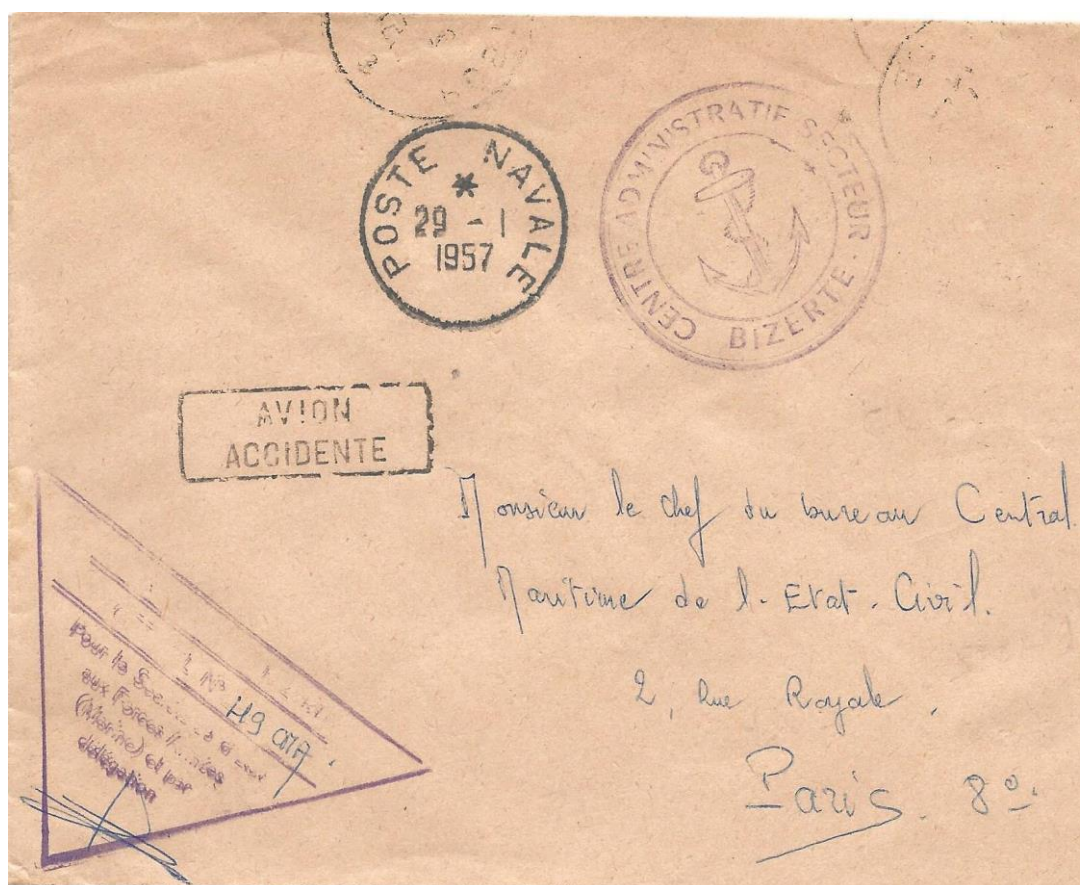 POSTE NAVALE
29 - 1
1957
CENTRE ADMINISTRATIF SECTEUR - BIZERTE
AVION
ACCIDENTE
Monsieur le chef du bureau Central
Maritime de l-Etat-Civil.
2, Rue Royale.
Paris. 8e.
No
Pour le
aux Forces
(Marine) et par
délégation